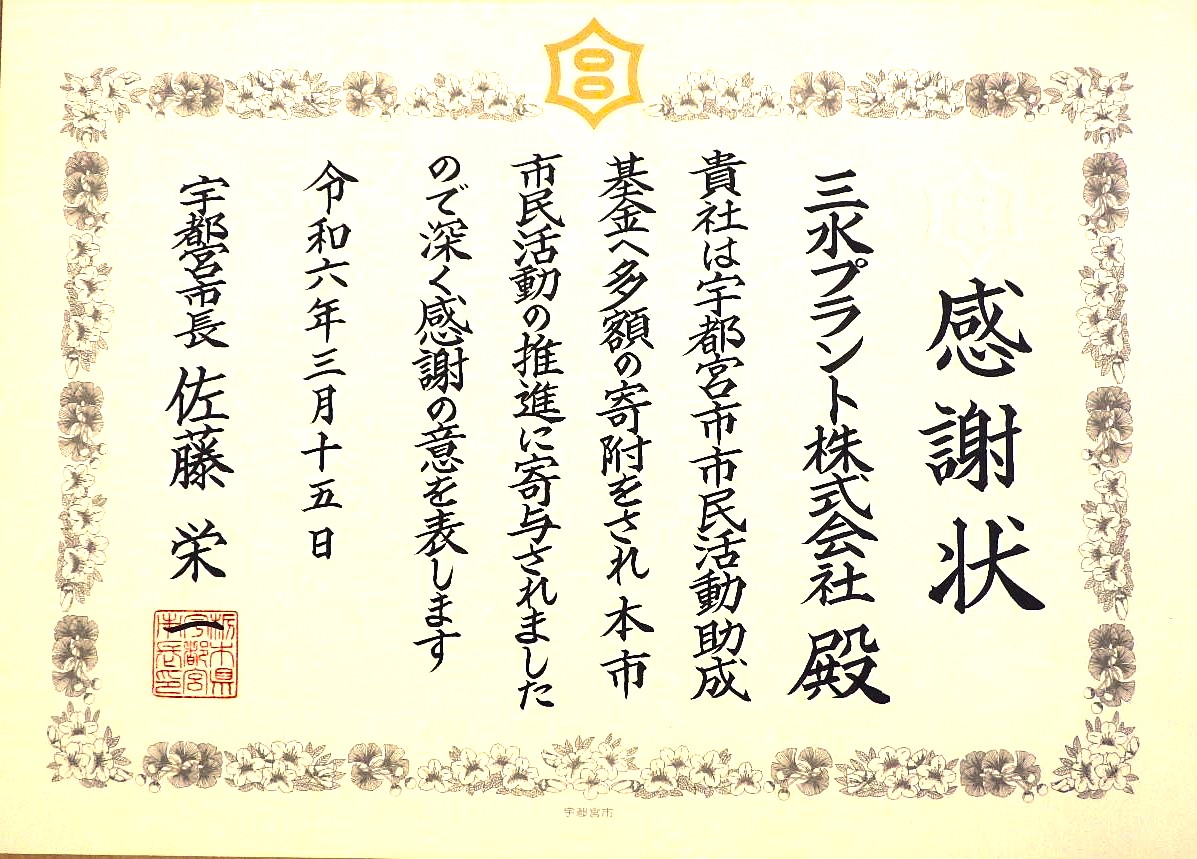 感謝状
三水プラント株式会社 殿
貴社は宇都宮市市民活動助成
基金へ多額の寄附をされ 本市
市民活動の推進に寄与されました
ので深く感謝の意を表します
令和六年三月十五日
宇都宮市長 佐藤栄一
栃木県
宇都宮
市長印
宇都宮市